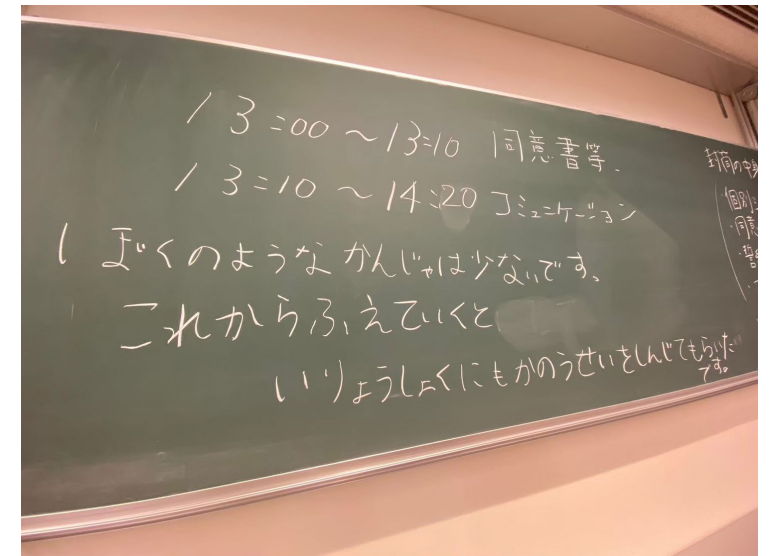 13:00～13:10 同意書等.
13:10～14:20 コミュニケーション
ぼくのような かんじゃは少ないです。
これからふえていくと
いりょうしょくにもかのうせいをしんじてもらいた
です。
封筒の中身
個別
・同意